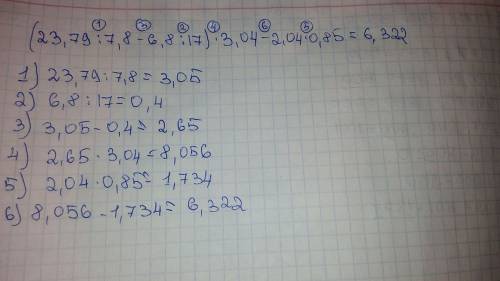 ① ③ ② ④ ⑥ ⑤
(23,79:7,8-6,8:17)·3,04-2,04·0,85=6,322
1) 23,79:7,8=3,05
2) 6,8:17=0,4
3) 3,05-0,4=2,65
4) 2,65·3,04=8,056
5) 2,04·0,85=1,734
6) 8,056-1,734=6,322